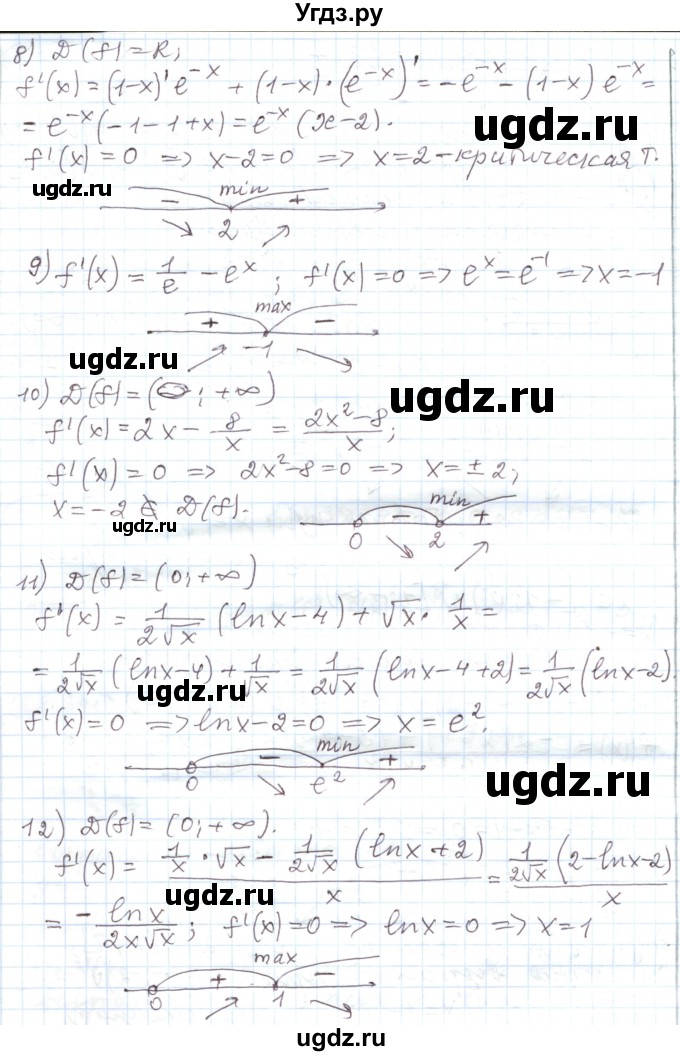 Угдз.ру
8) D(f)=R;
f'(x)=(1-x)'e^{-x}+(1-x)·(e^{-x})'=-e^{-x}-(1-x)e^{-x}=
=e^{-x}(-1-1+x)=e^{-x}(x-2).
f'(x)=0 => x-2=0 => x=2-критическая т.
ugdz.ru
ugdz.ru
- min +
2
9) f'(x)=1/e-e^x; f'(x)=0 => e^x=e^{-1} => x=-1
+ max -
-1
ugdz.ru
ugdz.ru
10) D(f)=(0;+∞)
f'(x)=2x-8/x=(2x²-8)/x;
f'(x)=0 => 2x²-8=0 => x=±2;
x=-2 ∉ D(f).
ugdz.ru
- min +
0 2
11) D(f)=(0;+∞)
f'(x)=1/(2√x)(lnx-4)+√x·1/x=
=1/(2√x)(lnx-4)+1/√x=1/(2√x)(lnx-4+2)=1/(2√x)(lnx-2).
ugdz.ru
f'(x)=0 => lnx-2=0 => x=e².
- min +
0 e²
ugdz.ru
12) D(f)=(0;+∞).
f'(x)=(1/x·√x-1/(2√x)(lnx+2))/x=(1/(2√x)(2-lnx-2))/x
ugdz.ru
=-lnx/(2x√x); f'(x)=0 => lnx=0 => x=1
+ max -
0 1
ugdz.ru
ugdz.ru